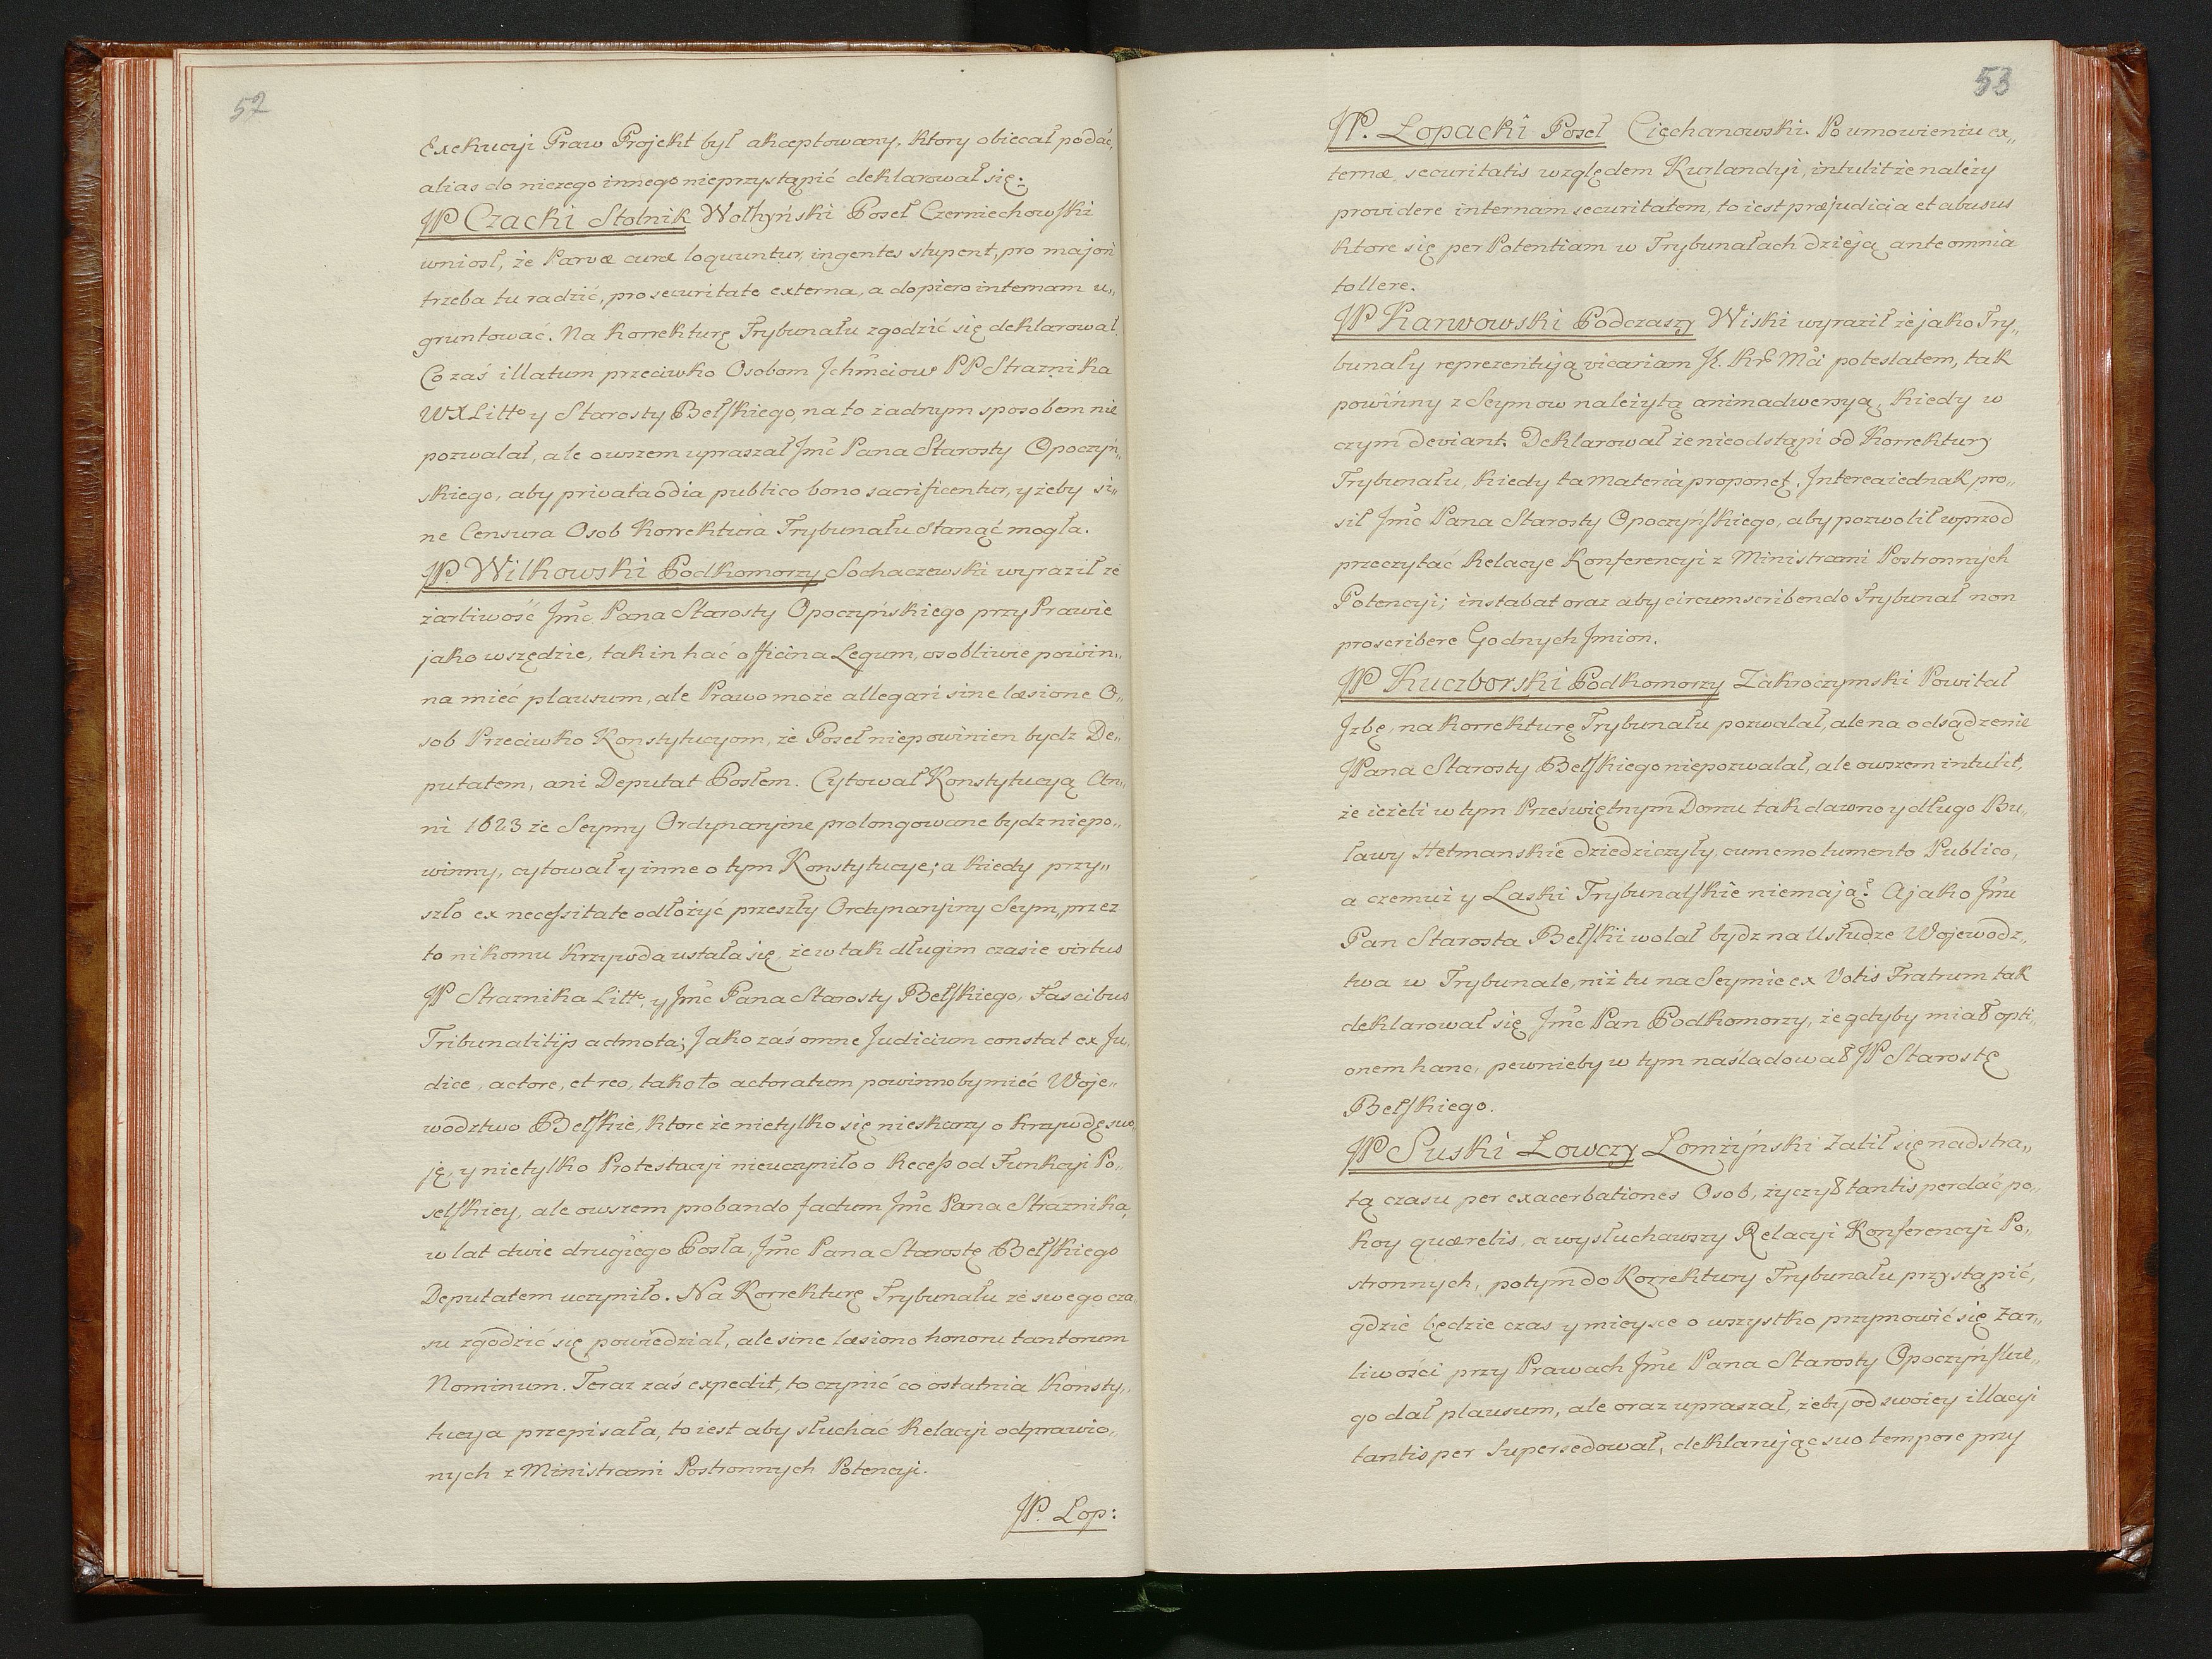 52
Exekucyi Praw Projekt był akceptowany, ktory obiecał podać,
alias do niczego innego nieprzystąpić deklarował się.
JP Czacki Stolnik Wołhyński Poseł Czerniechowski
wniosł, że Parvæ curæ loquuntur, ingentes stupent, pro majori
trzeba tu radzić, pro securitate externa, a dopiero internam u„
gruntować. Na Korrekturę Trybunału zgodzić się deklarował
Co zaś illatum przeciwko Osobom Jchmciow PP Straznika
WXLitto y Starosty Bełskiego, na to żadnym sposobem nie
pozwalał, ale owszem upraszał Jmć Pana Starosty Opoczyń„
skiego, aby privata odia publico bono sacrificentur, y żeby si„
ne Censura Osob Korrektura Trybunału stanąć mogła.
JP. Wilkowski Podkomorzy Sochaczewski wyraził że
żarliwość Jmć Pana Starosty Opoczyńskiego przy Prawie
jako wszędzie, tak in hac officina Legum, osobliwie powin„
na mieć plausum, ale Prawo może allegari sine læsione O„
sob Przeciwko Konstytucyom, że Poseł niepowinien bydz De„
putatem, ani Deputat Posłem. Cytował Konstytucyą An„
ni 1623 że Seymy Ordynaryjne prolongowane bydz niepo„
winny, cytował y inne o tym Konstytucye; a kiedy przy„
szło ex necessitate odłożyć przeszły Ordynaryiny Seym, przez
to nikomu krzywda ustała się, że w tak długim czasie virtus
JP Straznika Litto, y Jmć Pana Starosty Bełskiego, Fascibus
Tribunalitijs admota; Jako zaś omne Judicium constat ex Ju„
dice, actore, et reo, tak o to actoratum powinno by mieć Woje„
wodztwo Bełskie, ktore że nietylko się nieskarzy o krzywdę swo„
ję, y nietylko Protestacyi nieuczyniło o Recess od Funkcyi Po„
selskiey, ale owszem probando factum Jmć Pana Straznika,
w lat dwie drugiego Posła, Jmć Pana Starostę Bełskiego
Deputatem uczyniło. Na Korrekturę Trybunału ze swego cza„
su zgodzić się powiedział, ale sine læsione honoru tantorum
Nominum. Teraz zaś expedit, to czynić co ostatnia Konsty„
tucya przepisała, to iest aby słuchać Relacyi odprawio„
nych z Ministrami Postronnych Potencyi.
JP. Lop:
53
JP. Lopacki Poseł Ciechanowski. Po umowieniu ex„
ternæ, securitatis względem Kurlandyi, intulit że należy
providere internam securitatem, to iest præjudicia et abusus
ktore się per Potentiam w Trybunałach dzieją ante omnia
tollere.
JP Karwowski Podczaszy Wiski wyraził że jako Try„
bunały reprezentują vicariam J. Kr Mći potestatem, tak
powinny z Seymow należytą animadwersyą, kiedy w
czym deviant. Deklarował że nieodstąpi od Korrektury
Trybunału, kiedy ta Materia proponet. Interea iednak pro„
sił Jmć Pana Starosty Opoczyńskiego, aby pozwolił wprzod
przeczytać Relacye Konferencyi z Ministrami Postronnych
Potencyi; instabat oraz aby circumscribendo Trybunał non
proscribere Godnych Jmion.
JP Kuczborski Podkomorzy Zakroczymski Powitał
Jzbę, na Korrekturę Trybunału pozwalał, ale na odsądzenie
JPana Starosty Bełskiego niepozwalał, ale owszem intulit,
że ieżeli w tym Przeświętnym Domu tak dawno y długo Bu„
ławy Hetmanskie dziedziczyły, cum emolumento Publico,
a czemuż y Laski Trybunalskie niemają? A jako Jmć
Pan Starosta Bełski wolał bydz na Usłudze Wojewodz„
twa w Trybunale, niż tu na Seymie ex Votis Fratrum tak
deklarował się Jmć Pan Podkomorzy, że gdyby miał opti„
onem hanc, pewnieby w tym naśladował JP Starostę
Bełskiego.
JP Suski Lowczy Lomżyński Żalił się nad stra„
tą czasu per exacerbationes Osob, życzył tantisper dać po„
koy quærelis, a wysłuchawszy Relacyi Konferencyi Po„
stronnych, potym do Korrektury Trybunału przystąpić,
gdzie będzie czas y mieysce o wszystko przymowić się Żar„
liwości przy Prawach Jmć Pana Starosty Opoczyńskie„
go dał plausum, ale oraz upraszał, żeby od swoiey illacyi
tantisper supersedował, deklarując suo tempore przy